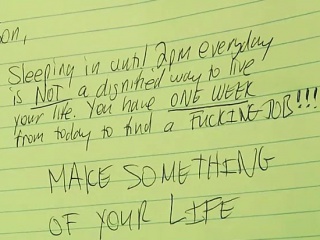 on,
Sleeping in until 2pm everyday
is NOT a dignified way to live
your life. You have ONE WEEK
from today to find a FUCKING JOB!!!
MAKE SOMETHING
OF YOUR LIFE